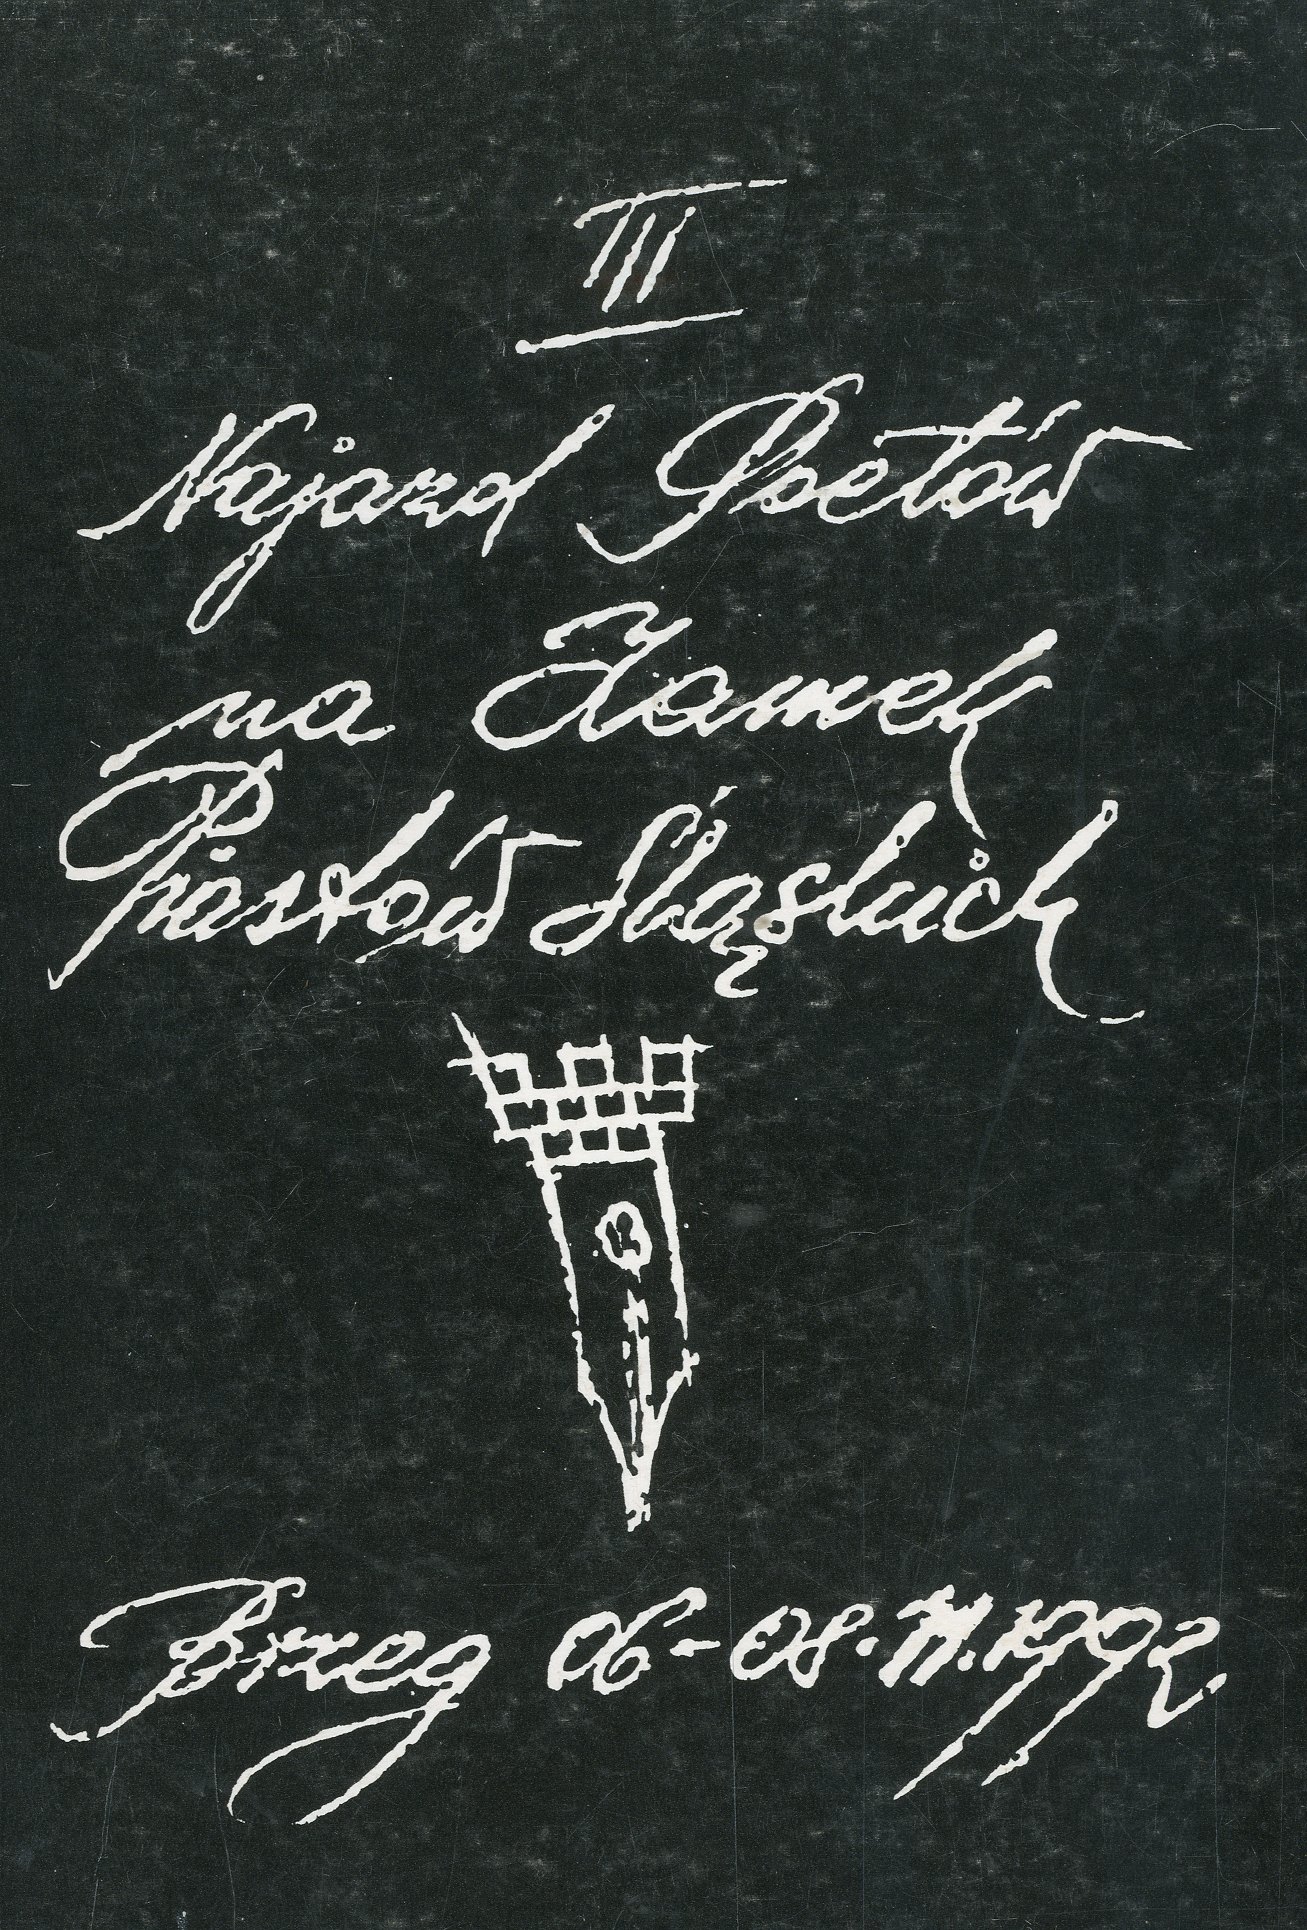 III
Najazd Poetów
na Zamek
Piastów Śląskich
Brzeg 06-08.11.1992